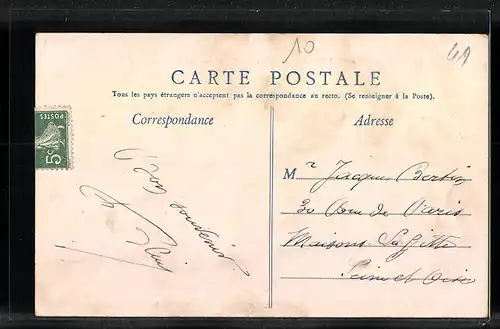 10
49
CARTE POSTALE
Tous les pays étrangers n'acceptent pas la correspondance au recto. (Se renseigner à la Poste).
Correspondance
Adresse
POSTES
5c
souvenir
Mr Jacques Bertin
30 de Paris
Maisons-Laffitte
Seine et Oise